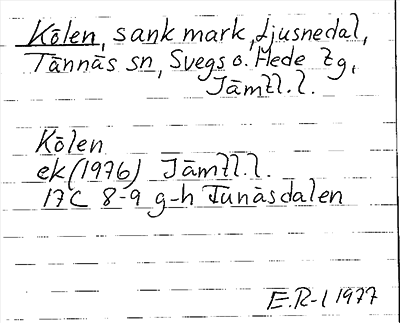 Kölen, sank mark, Ljusnedal,
Tännäs sn, Svegs o. Hede tg,
Jämtl. l.
Kölen
ek (1976) Jämtl. l.
17C 8-9 g-h Funäsdalen
E.R-l 1977